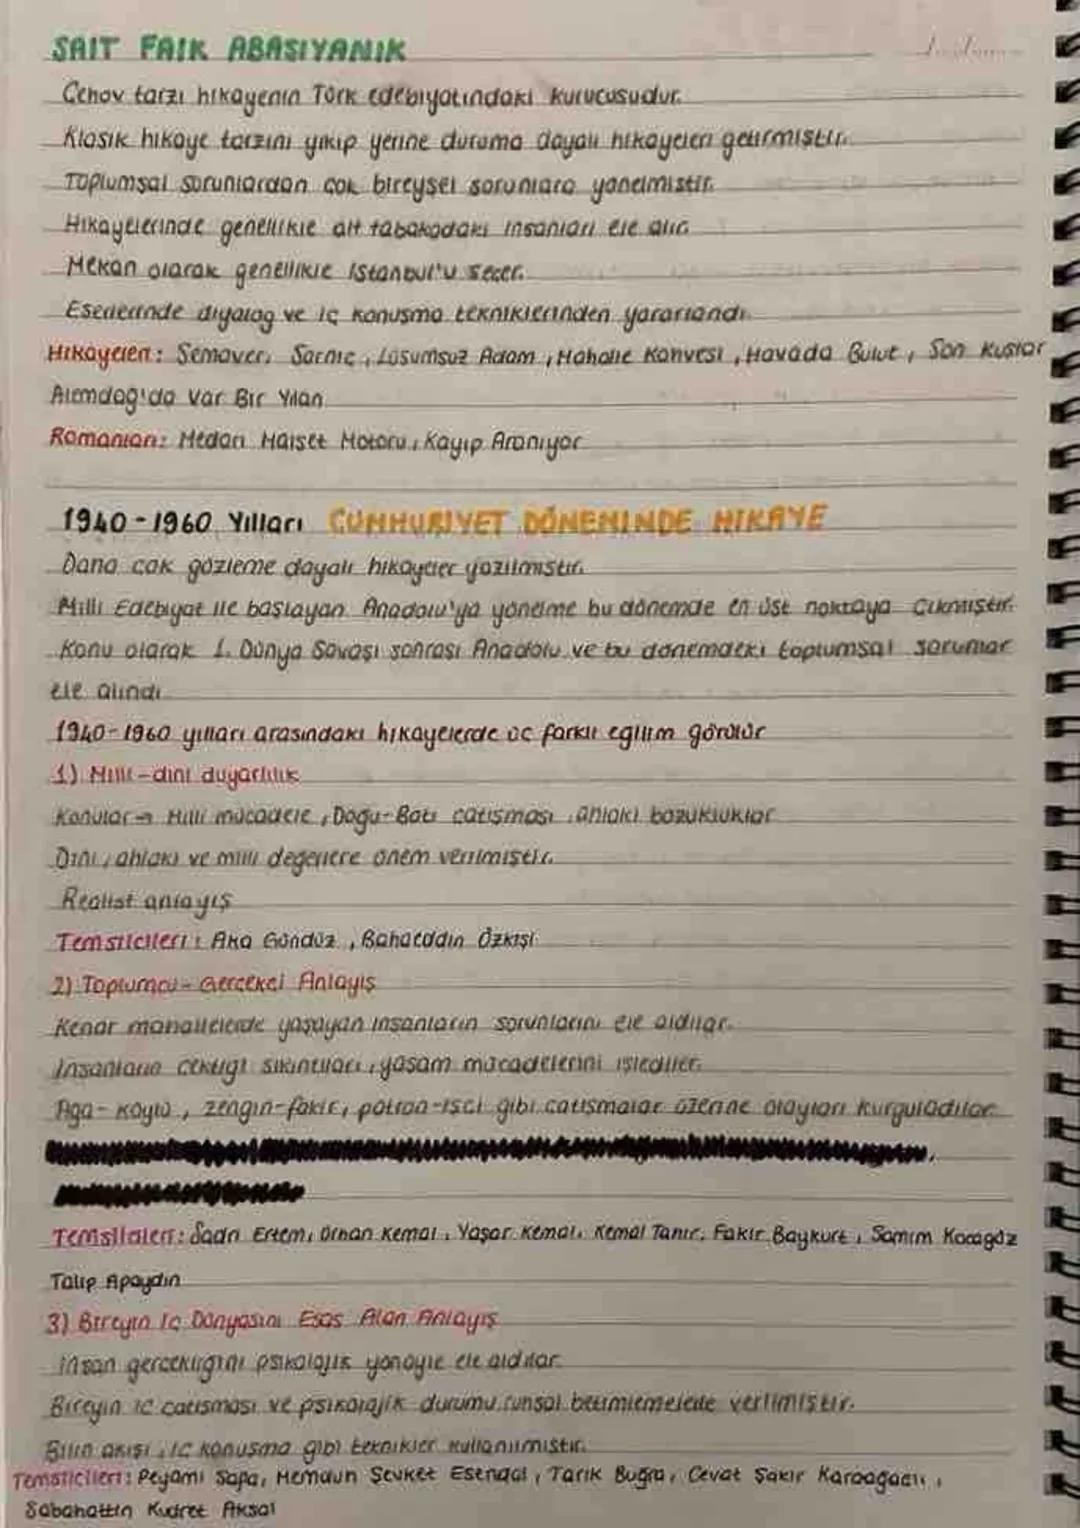 SAIT FAIK ABASIYANIK
Çehov tarzı hikayenin Türk edebiyatındaki kurucusudur.
Klasik hikaye tarzını yıkıp yerine duruma dayalı hikayeleri getirmiştir.
Toplumsal sorunlardan çok bireysel sorunlara yönelmiştir.
Hikayelerinde genellikle alt tabakadaki insanları ele alır.
Mekan olarak genellikle İstanbul'u seçer.
Eserlerinde diyalog ve iç konuşma tekniklerinden yararlandı.
Hikayeleri: Semaver, Sarnıç, Lüsumsuz Adam, Mahalle Kahvesi, Havada Bulut, Son Kuşlar
Alemdağ'da Var Bir Yılan
Romanları: Medarı Maişet Motoru, Kayıp Aranıyor
1940-1960 Yılları CUMHURİYET DÖNEMİNDE HİKAYE
Daha çok gözleme dayalı hikayeler yazılmıştır.
Milli Edebiyat ile başlayan Anadolu'ya yönelme bu dönemde en üst noktaya çıkmıştır.
Konu olarak 1. Dünya Savaşı sonrası Anadolu ve bu dönemdeki toplumsal sorunlar
ele alındı
1940-1960 yılları arasındaki hikayelerde üç farklı eğilim görülür
1) Milli-dini duyarlılık
Konular → Milli mücadele, Doğu-Batı çatışması, ahlaki bozukluklar
Dini, ahlaki ve milli değerlere önem verilmiştir.
Realist anlayış
Temsilcileri: Aka Gündüz, Bahaeddin Özkişi
2) Toplumcu-Gerçekçi Anlayış
Kenar mahallelerde yaşayan insanların sorunlarını ele aldılar.
İnsanların çektiği sıkıntıları, yaşam mücadelerini işlediler.
Ağa-köylü, zengin-fakir, patron-işçi gibi çatışmalar üzerine olayları kurguladılar
Temsilcileri: Sadri Ertem, Orhan Kemal, Yaşar Kemal, Kemal Tahir, Fakir Baykurt, Samim Kocagöz
Talip Apaydın
3) Bireyin İç Dünyasını Esas Alan Anlayış
İnsan gerçekliğini psikolojik yönüyle ele aldılar.
Bireyin iç çatışması ve psikolojik durumu ruhsal betimlemelerle verilmiştir.
Bilin akışı, iç konuşma gibi teknikler kullanılmıştır.
Temsilcileri: Peyami Safa, Memduh Şevket Esendal, Tarık Buğra, Cevat Şakir Karaağaçlı,
Sabahattin Kudret Aksal